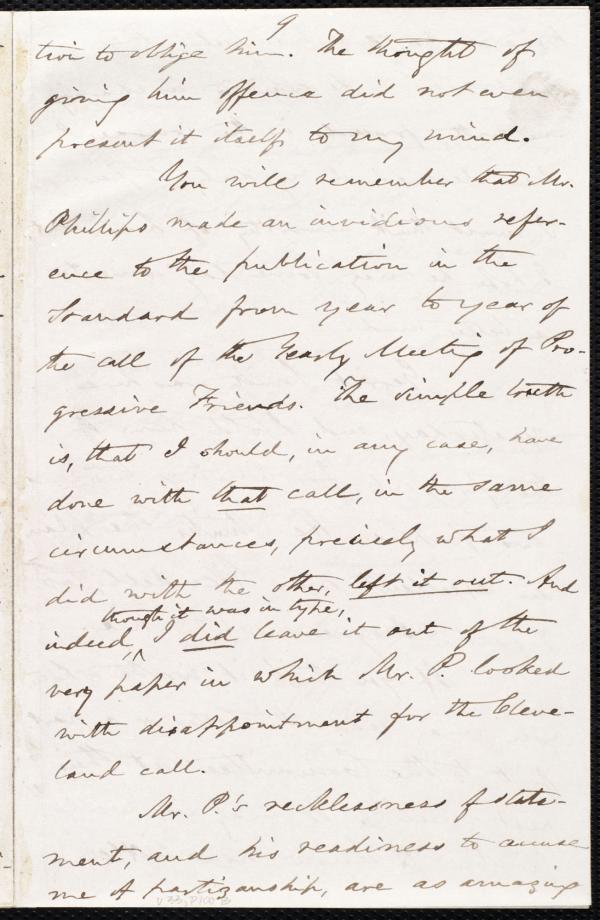 9
tion to oblige him. The thought of
giving him offence did not even
present it itself to my mind.
You will remember that Mr.
Phillips made an invidious refer-
ence to the publication in the
Standard from year to year of
the call of the Yearly Meeting of Pro-
gressive Friends. The simple truth
is, that I should, in any case, have
done with that call, in the same
circumstances, precisely what I
did with the other, left it out. And
though it was in type,
indeed, ^ I did leave it out of the
very paper in which Mr. P. looked
with disappointment for the Cleve-
land call.
Mr. P.'s recklessness of state-
ment, and his readiness to accuse
me of partizanship, are as amazing